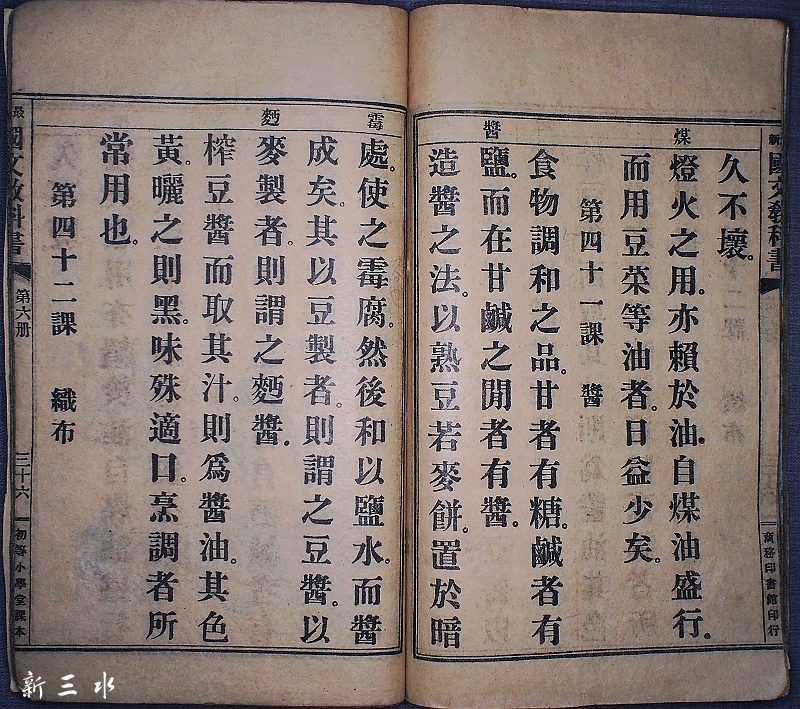 新國文教科書
商務印書館印行
煤
醬
久不壞。
燈火之用。亦賴於油。自煤油盛行。
而用豆菜等油者。日益少矣。
第四十一課　醬
食物調和之品。甘者有糖。鹹者有
鹽。而在甘鹹之閒者有醬。
造醬之法。以熟豆若麥餅。置於暗
霉
麪
處。使之霉腐。然後和以鹽水。而醬
成矣。其以豆製者。則謂之豆醬。以
麥製者。則謂之麪醬。
榨豆醬而取其汁。則爲醬油。其色
黃。曬之則黑。味殊適口。烹調者所
常用也。
第四十二課　織布
最國文教科書
第六册
三十六
初等小學堂課本
新三水